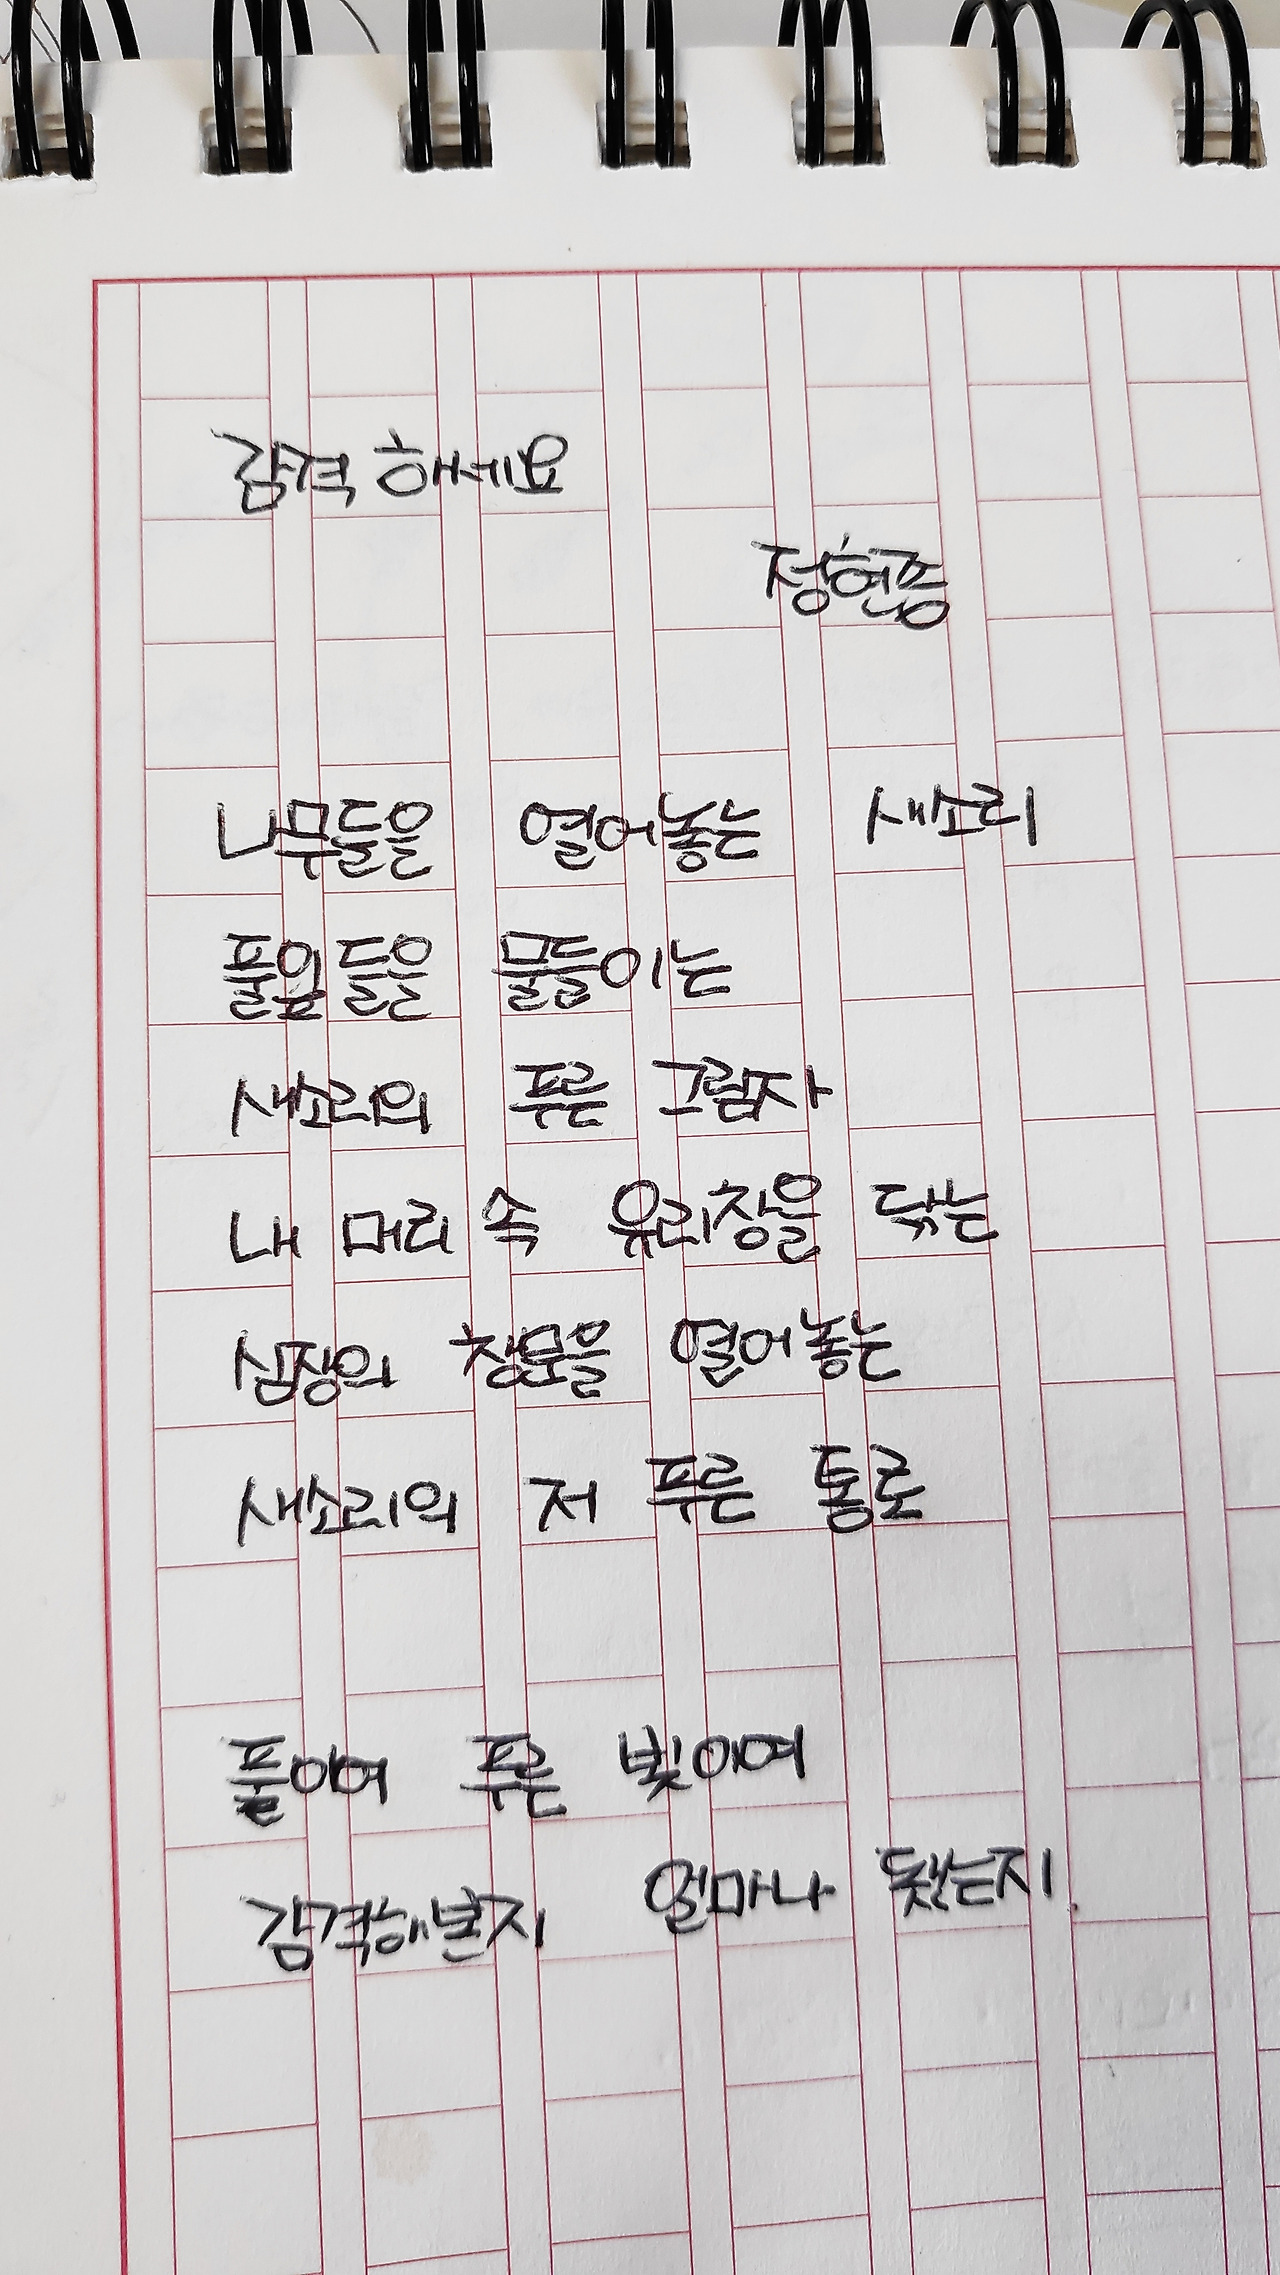 감격 하세요
정현종
나무들을 열어놓는 새소리
풀잎들을 물들이는
새소리의 푸른 그림자
내 머리 속 유리창을 닦는
심장의 창문을 열어놓는
새소리의 저 푸른 통로
풀이여 푸른 빛이여
감격해본지 얼마나 됐는지.